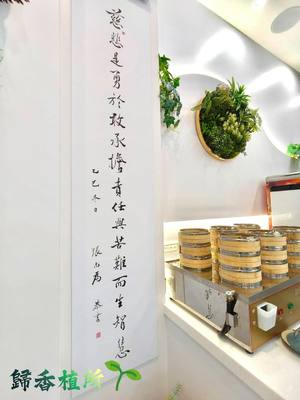 慈悲是勇於敢承擔責任與苦難而生智慧
乙巳冬日
恭書
歸香植所